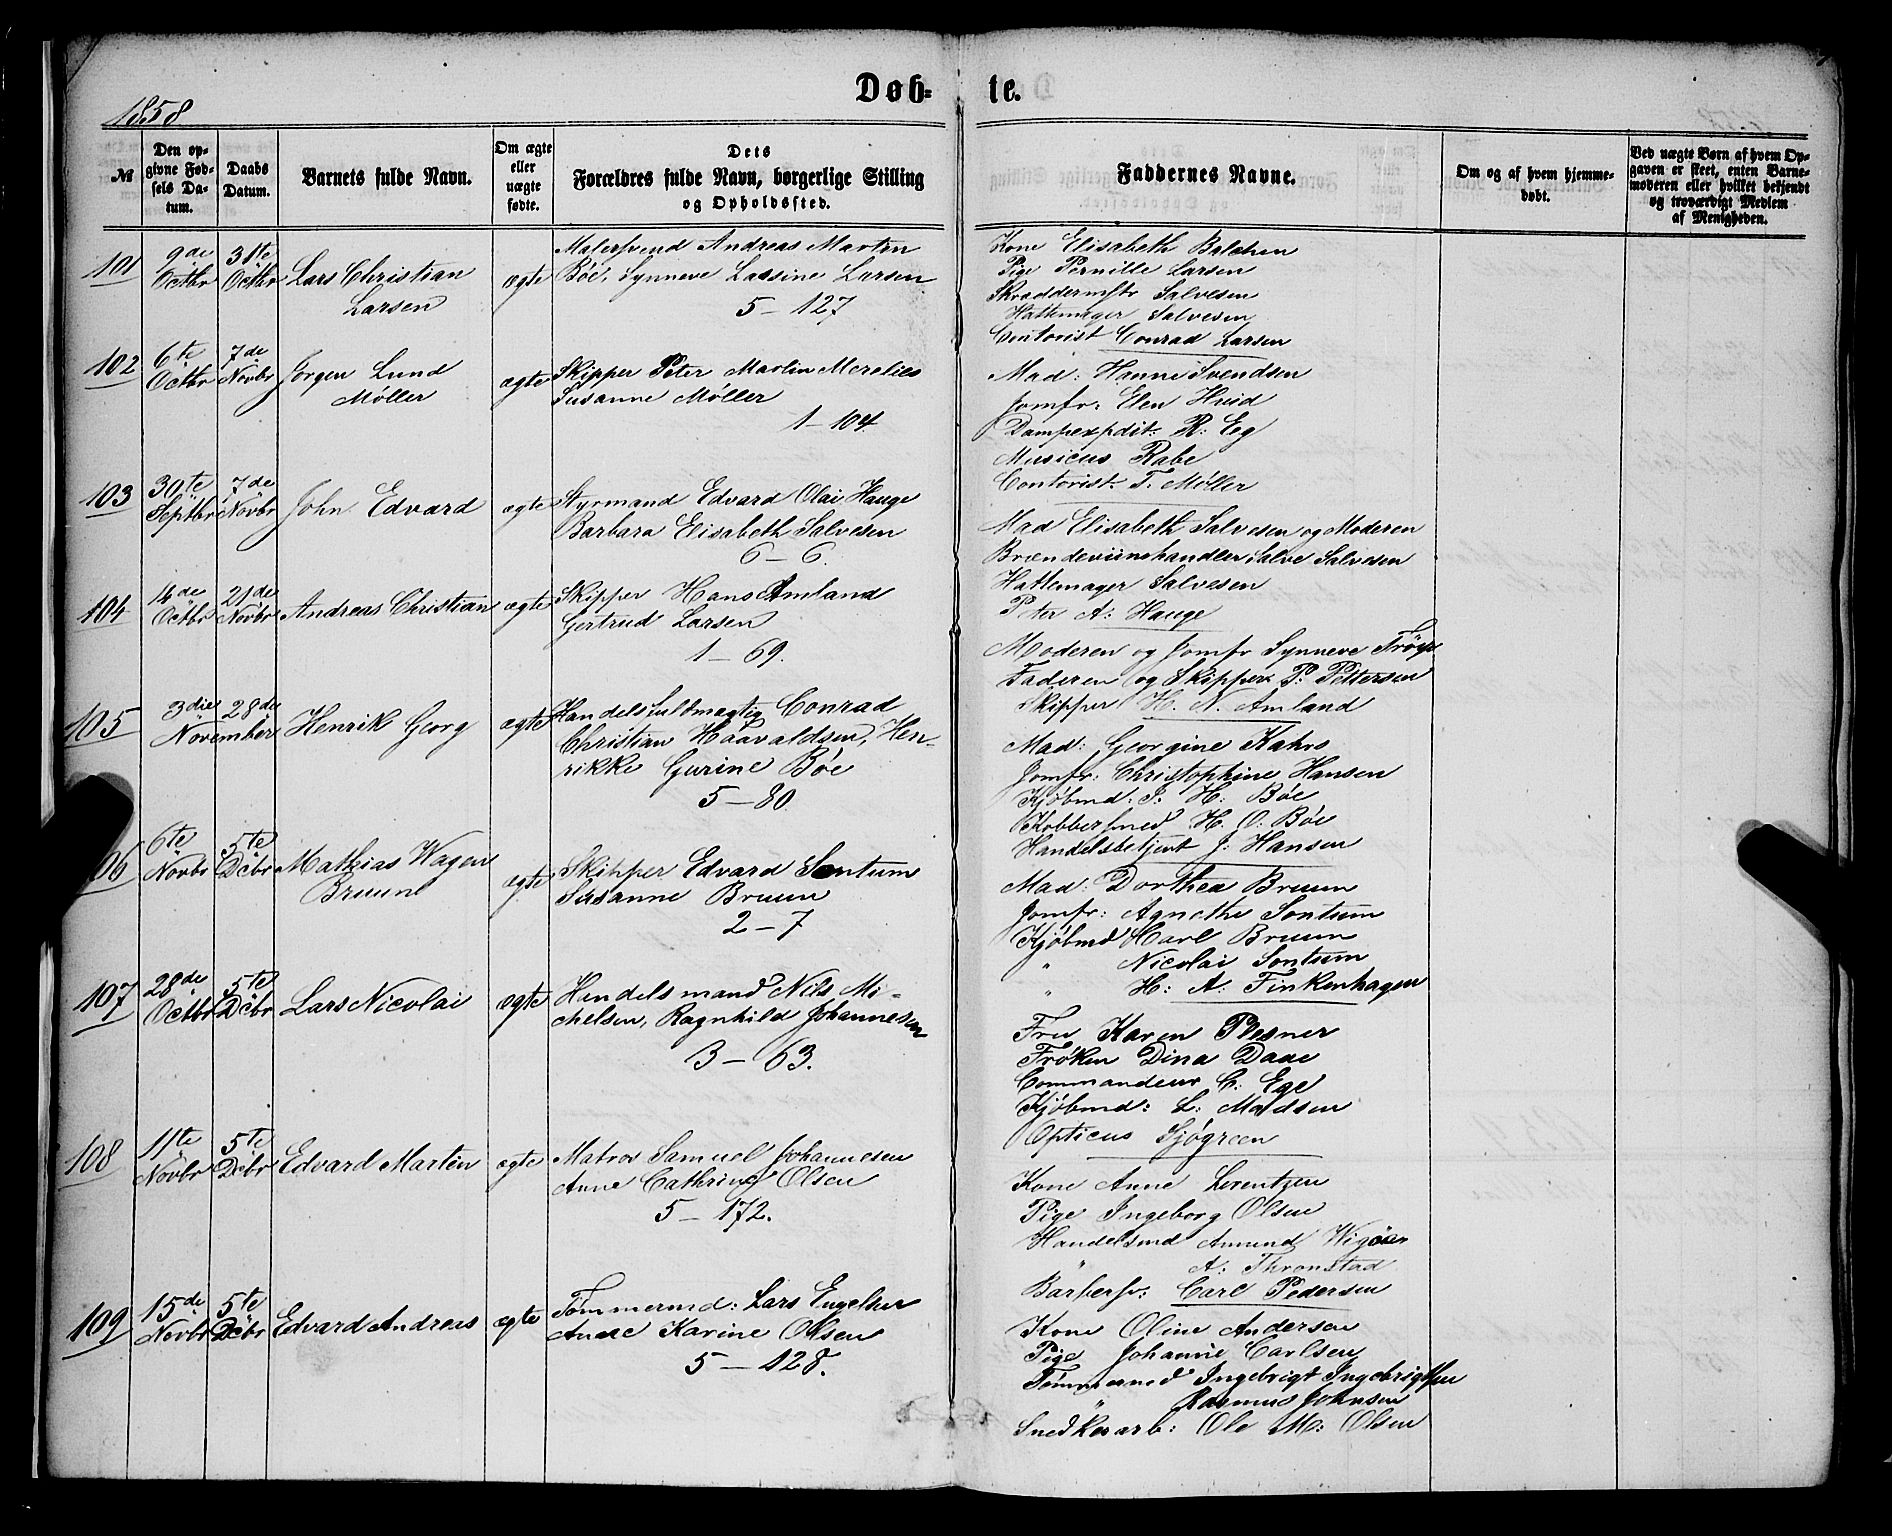 1858.
Døb- te.
№
Den opgivne Fødsels Datum.
Daabs Datum.
Barnets fulde Navn.
Om ægte eller uægte fødte.
Dets Forældres fulde Navn, borgerlige Stilling og Opholdssted.
Faddernes Navne.
Om og af hvem hjemmedøbt.
Ved uægte Børn af hvem Opgaven er skeet, enten Barnemoderen eller hvilket bekjendt og troværdigt Medlem af Menigheden.
101 9de Octbr 31te Octbr Lars Christian Larsen ægte
Malersvend Andreas Martin
Bøe, Synneve Lassine Larsen
5 – 127
Kone Elisabeth Balchen
Pige Pernille Larsen
Skræddermstr Salvesen
Hattemager Salvesen
Contorist Conrad Larsen
102 6te Octbr 7de Novbr Jørgen Lund Møller ægte
Skipper Peter Martin
Susanne Møller
1 – 104
Mad: Hanne Svendsen
Jomfr: Elen
Dampexpdit: R: Eeg
Musicus Rabe
Contorist: T. Møller
103 30te Septbr 7de Novbr John Edvard ægte
Styrmand Edvard Olai Hauge
Barbara Elisabeth Salvesen
6 – 6.
Mad Elisabeth Salvesen og Moderen
Brændeviinshandler Salve Salvesen
Hattemager Salvesen
Peter A: Hauge
104 Octbr 21de Novbr Andreas Christian ægte
Skipper Hans Amland
Gertrud Larsen
1 – 69.
Moderen og Jomfr Synneve
Faderen og Skipper P: Pettersen
Skipper H. N. Amland
105 3die 28de November Henrik Georg ægte
Handelsfuldmægtig Conrad
Christian Haavaldsen, Hen-
rikke Gurine Bøe
5 – 80.
Mad: Georgine Kahrs
Jomfr: Christophine Hansen
Kjøbmd: J. H: Bøe
Kobbersmed H. O. Bøe
Handelsbetjent J: Hansen
106 6te Novbr 5te Dcbr Mathias Wagen Bruun ægte
Skipper Edvard Sontum
Susanne Bruun
2 – 7
Mad: Dorthea Bruun
Jomfr: Agnethe Sontum
Kjøbmd Carl Bruun
" Nicolai Sontum
" H: A: Finkenhagen
107 28de Octbr 5te Dcbr Lars Nicolai ægte
Handelsmand Nils Mi-
chelsen, Ragnhild Johannesen
3 – 63.
Fru Karen Plesner
Frøken Dina Daae
Commandeur C: Ege
Kjøbmd: L: Madsen
Opticus Sjøgreen
108 11te Novbr 5te Dcbr Edvard Martin ægte
Matros Samuel Johannesen
Anne Cathrine Olsen
5 – 172.
Kone Anne Lorentzen
Pige Ingeborg Olsen
Handelsmd Amund
" A: Thronstad
Barbersv: Carl Pedersen
109 15de Novbr 5te Dcbr Edvard Andreas ægte
Tømmermd: Lars Engelsen
Anne Karine Olsen
5 – 128.
Kone Oline Andersen
Pige Johanne Carlsen
Tømmermd Ingebrigt Ingebrigtsen
" Rasmus Johnsen
Snedkerarb: Ole M: Olsen